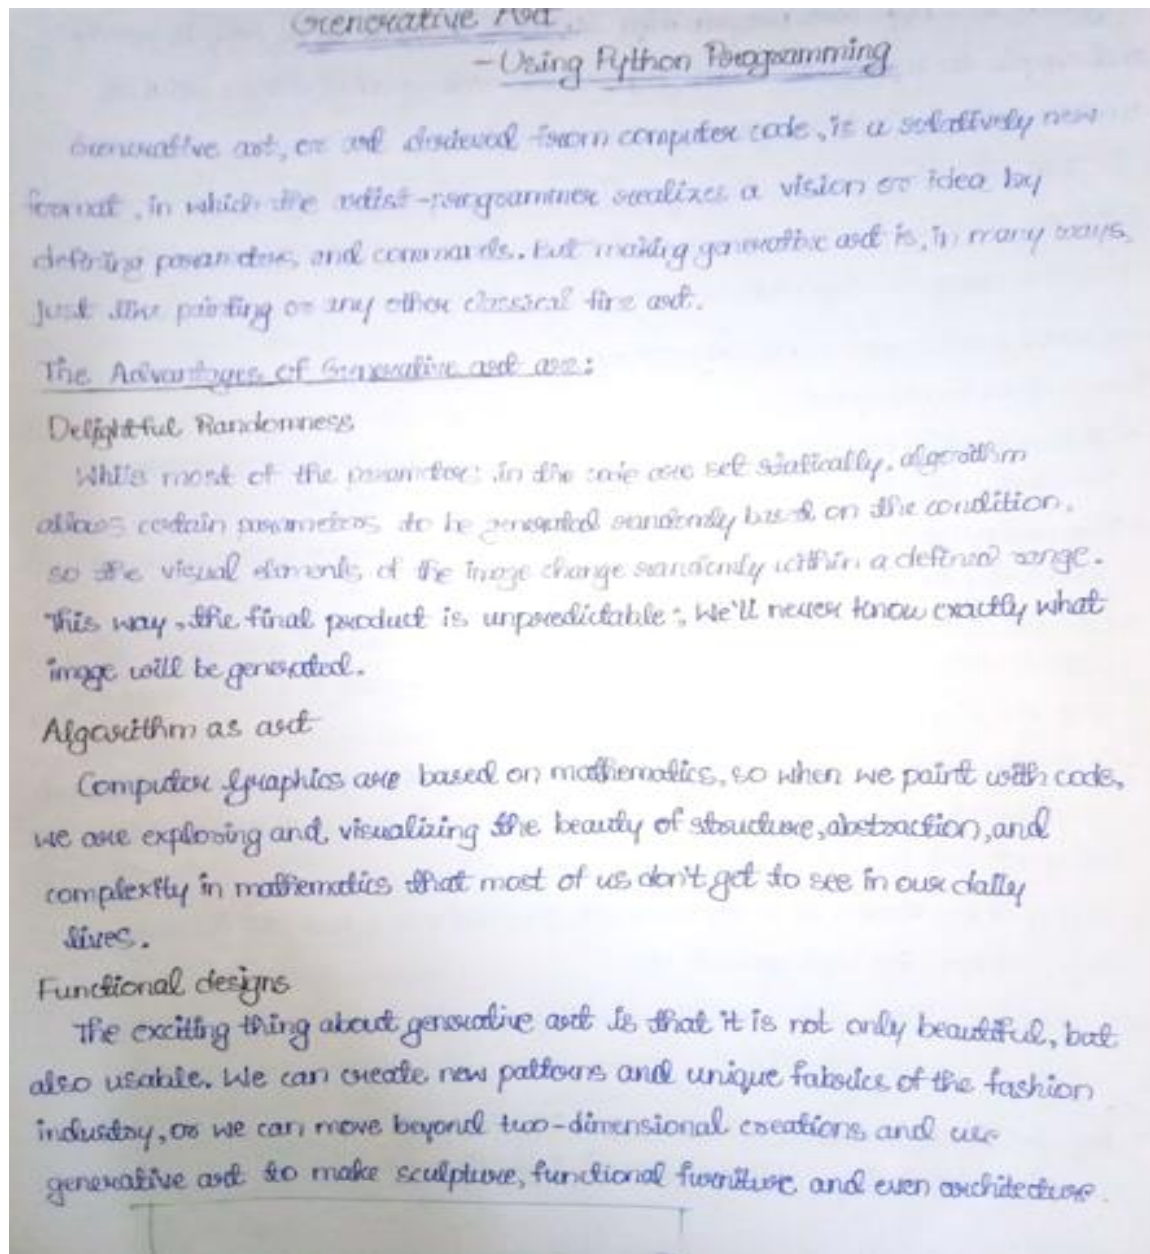 Generative Art
-Using Python Programming
Generative art, or art derieved from computer code, is a relatively new
format, in which the artist-programmer realizes a vision or idea by
defining parameters, and commands. But making generative art is, in many ways,
just like painting or any other classical fine art.
The Advantages of Generative art are:
Delightful Randomness
While most of the parameters in the code are set statically, algorithm
allows certain parameters to be generated randomly based on the condition.
so the visual elements of the image change randomly within a defined range.
This way, the final product is unpredictable; We'll never know exactly what
image will be generated.
Algorithm as art
Computer Graphics are based on mathematics, so when we paint with code,
we are exploring and visualizing the beauty of structure, abstraction, and
complexity in mathematics that most of us don't get to see in our daily
lives.
Functional designs
The exciting thing about generative art is that it is not only beautiful, but
also usable. We can create new patterns and unique fabrics of the fashion
industry, or we can move beyond two-dimensional creations and use
generative art to make sculpture, functional furniture and even architecture.